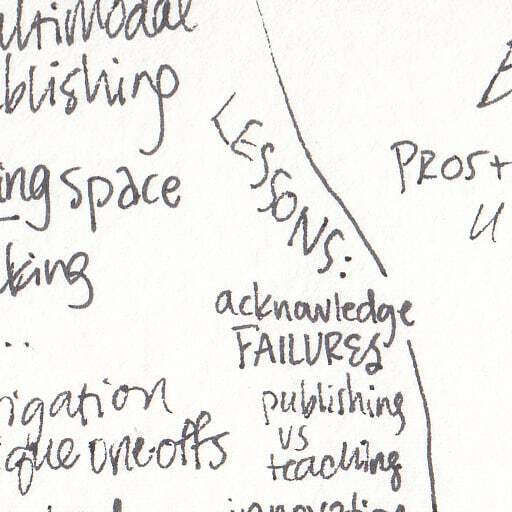 ultimodal
blishing
ing space
king
...
igation
que one-offs
LESSONS:
acknowledge
FAILURES
publishing
vs
teaching
innovation
PROST